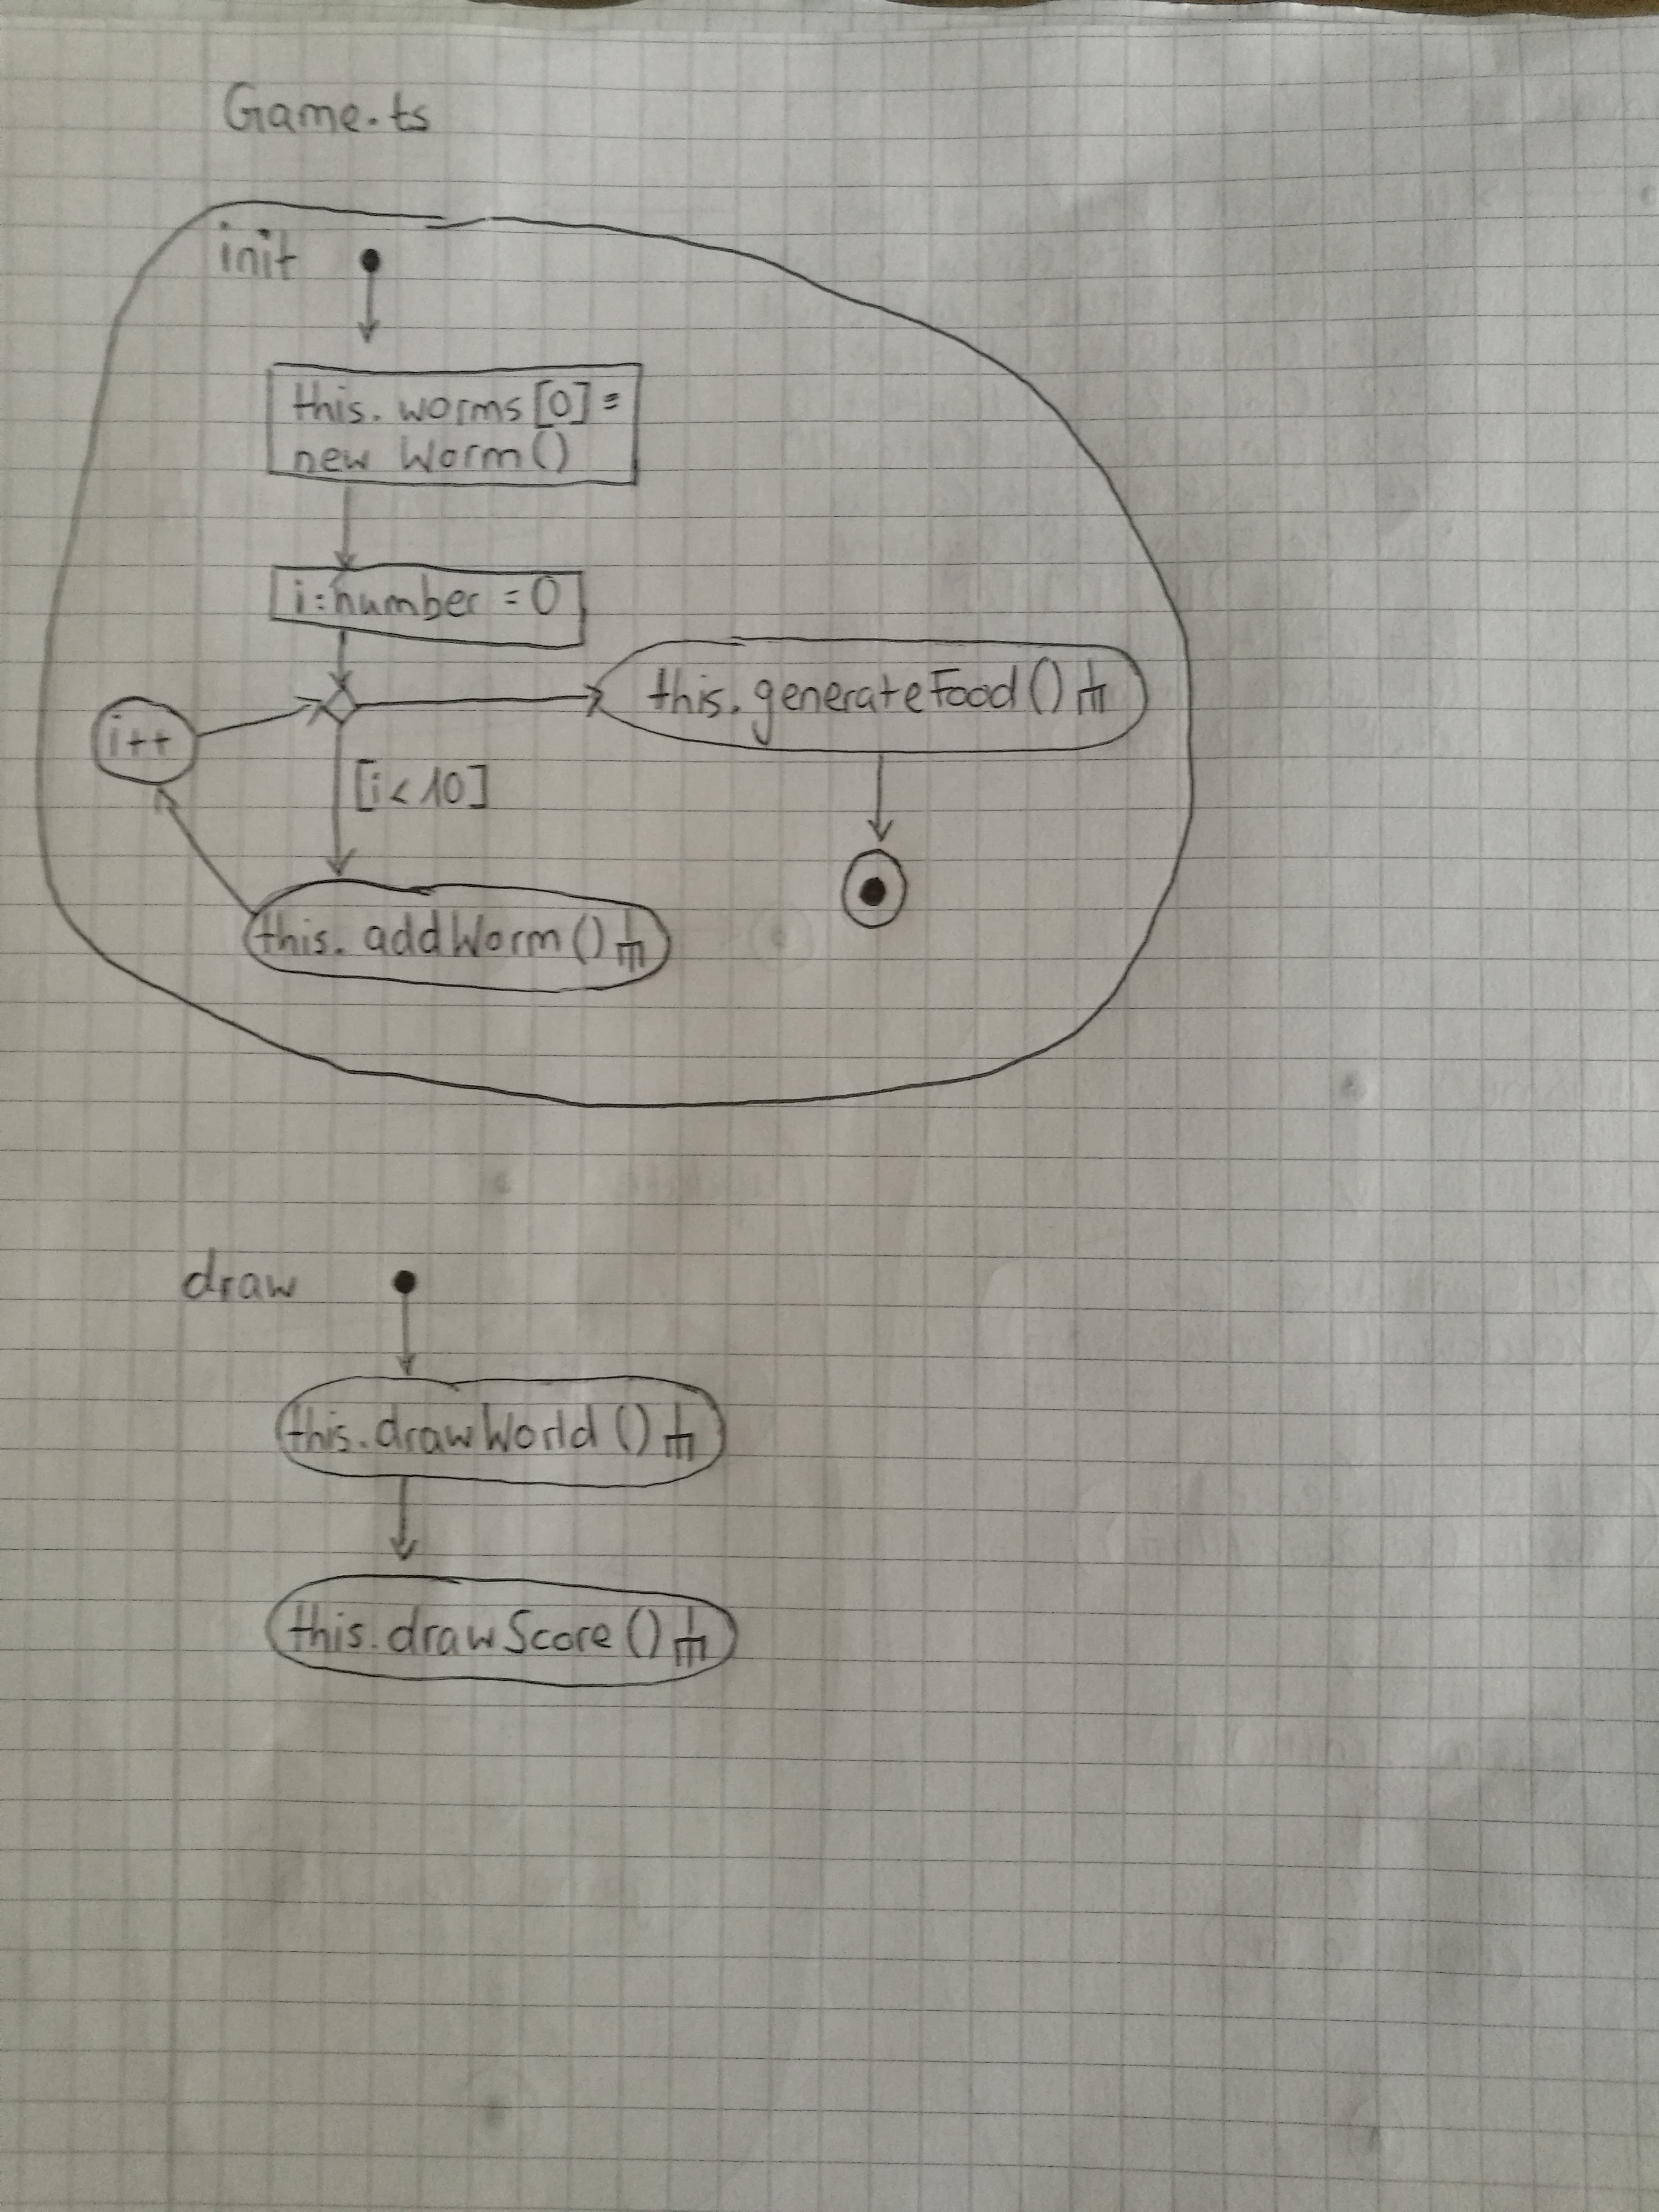 Game.ts
init
this.worms[0] =
new Worm()
i:number = 0
this.generateFood()
i++
[i<10]
this.addWorm()
draw
this.drawWorld()
this.drawScore()